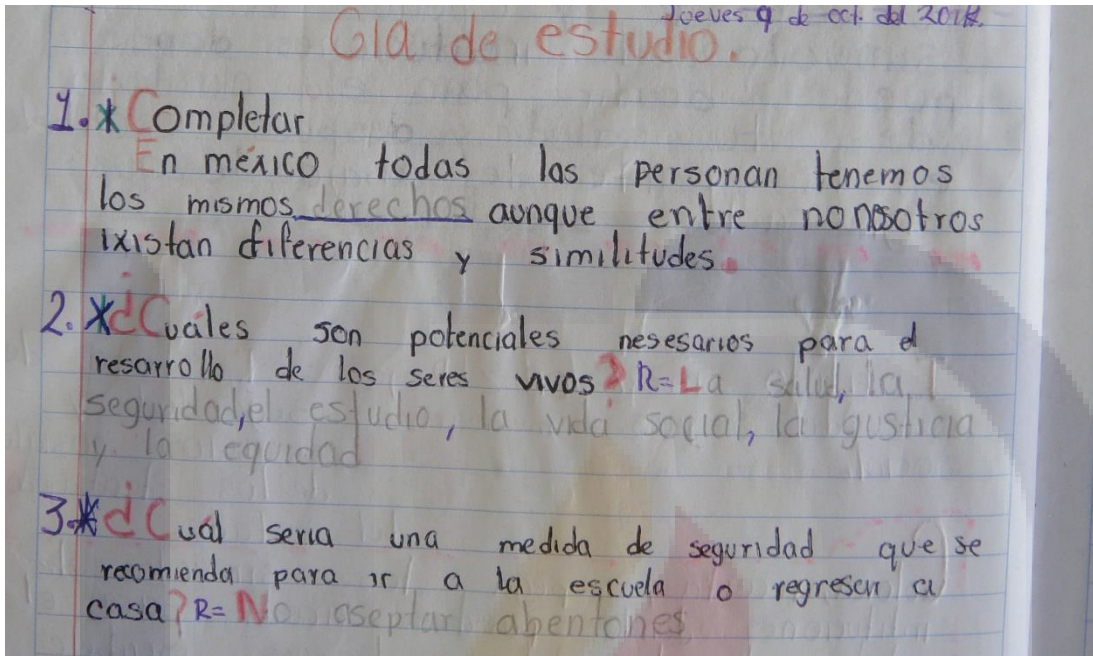 Joeves 9 de oct. del 2014.
Gia de estudio.
1.*Completar
En méxico todas las personan tenemos
los mismos derechos aunque entre nonosotros
ixistan diferencias y similitudes.
2.*¿Cuáles son potenciales nesesarios para el
resarrollo de los seres vivos? R=La salud, la
seguridad, el estudio, la vida social, la gusticia
y la equidad
3.*¿Cuál seria una medida de seguridad que se
recomienda para ir a la escuela o regresar a
casa? R= No aseptar abentones